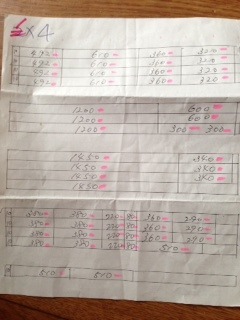 5x4
492 610 360 320
492 610 360 320
492 610 360 320
492 610 360 320
1200 600
1200 600
1200 300 300
1450 340
1450 340
1450 340
1450
380 380 220 80 360 290
380 380 220 80 360 290
380 380 220 80 360 290
380 380 220 80 510
510 510